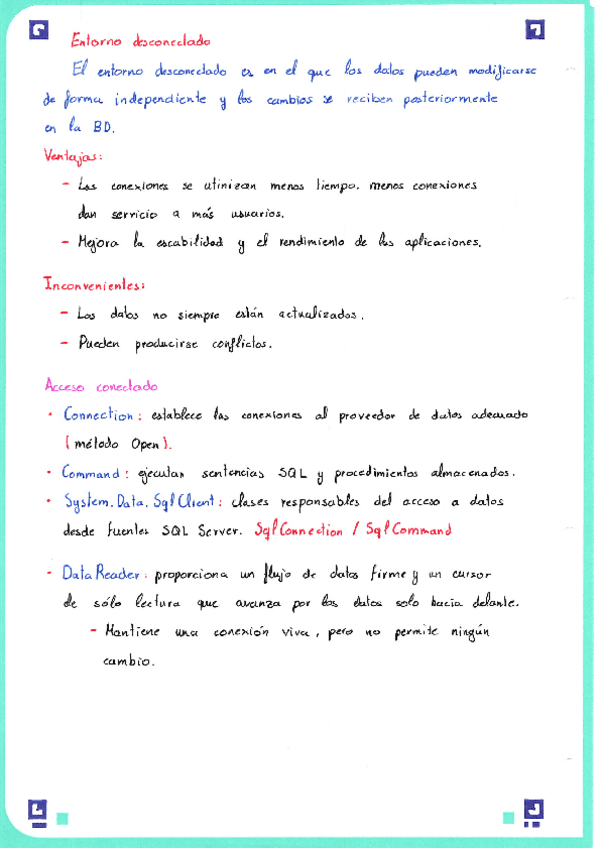 Entorno desconectado
El entorno desconectado es en el que los datos pueden modificarse
de forma independiente y los cambios se reciben posteriormente
en la BD.
Ventajas:
- Las conexiones se utinizan menos tiempo. menos conexiones
dan servicio a más usuarios.
- Mejora la escabilidad y el rendimiento de las aplicaciones.
Inconvenientes:
- Los datos no siempre están actualizados.
- Pueden producirse conflictos.
Acceso conectado
· Connection: establece las conexiones al proveedor de datos adecuado
(método Open).
· Command: ejecutar sentencias SQL y procedimientos almacenados.
· System.Data.SqlClient: clases responsables del acceso a datos
desde fuentes SQL Server. SqlConnection / SqlCommand
- DataReader: proporciona un flujo de datos firme y un cursor
de sólo lectura que avanza por los datos solo hacia delante.
- Mantiene una conexión viva, pero no permite ningún
cambio.